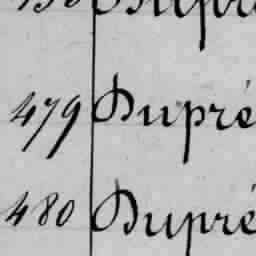 479 Dupré
480 Dupré